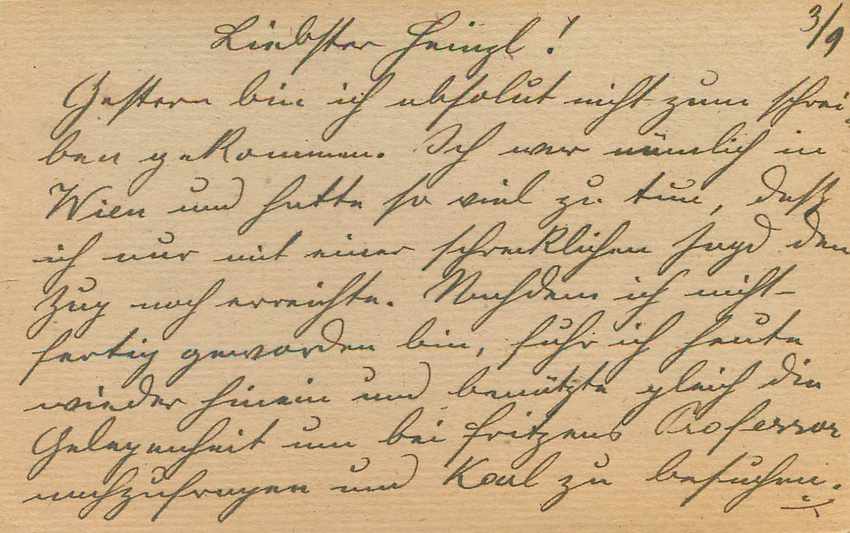 3/9
Liebster Heinzl!
Gestern bin ich absolut nicht zum schrei-
ben gekommen. Ich war nämlich in
Wien und hatte so viel zu tun, daß
ich nur mit einer schrecklichen Jagd den
Zug noch erreichte. Nachdem ich nicht
fertig geworden bin, fuhr ich heute
wieder hinein und benützte gleich die
Gelegenheit um bei Fritzens Professor
nachzufragen und Karl zu besuchen.